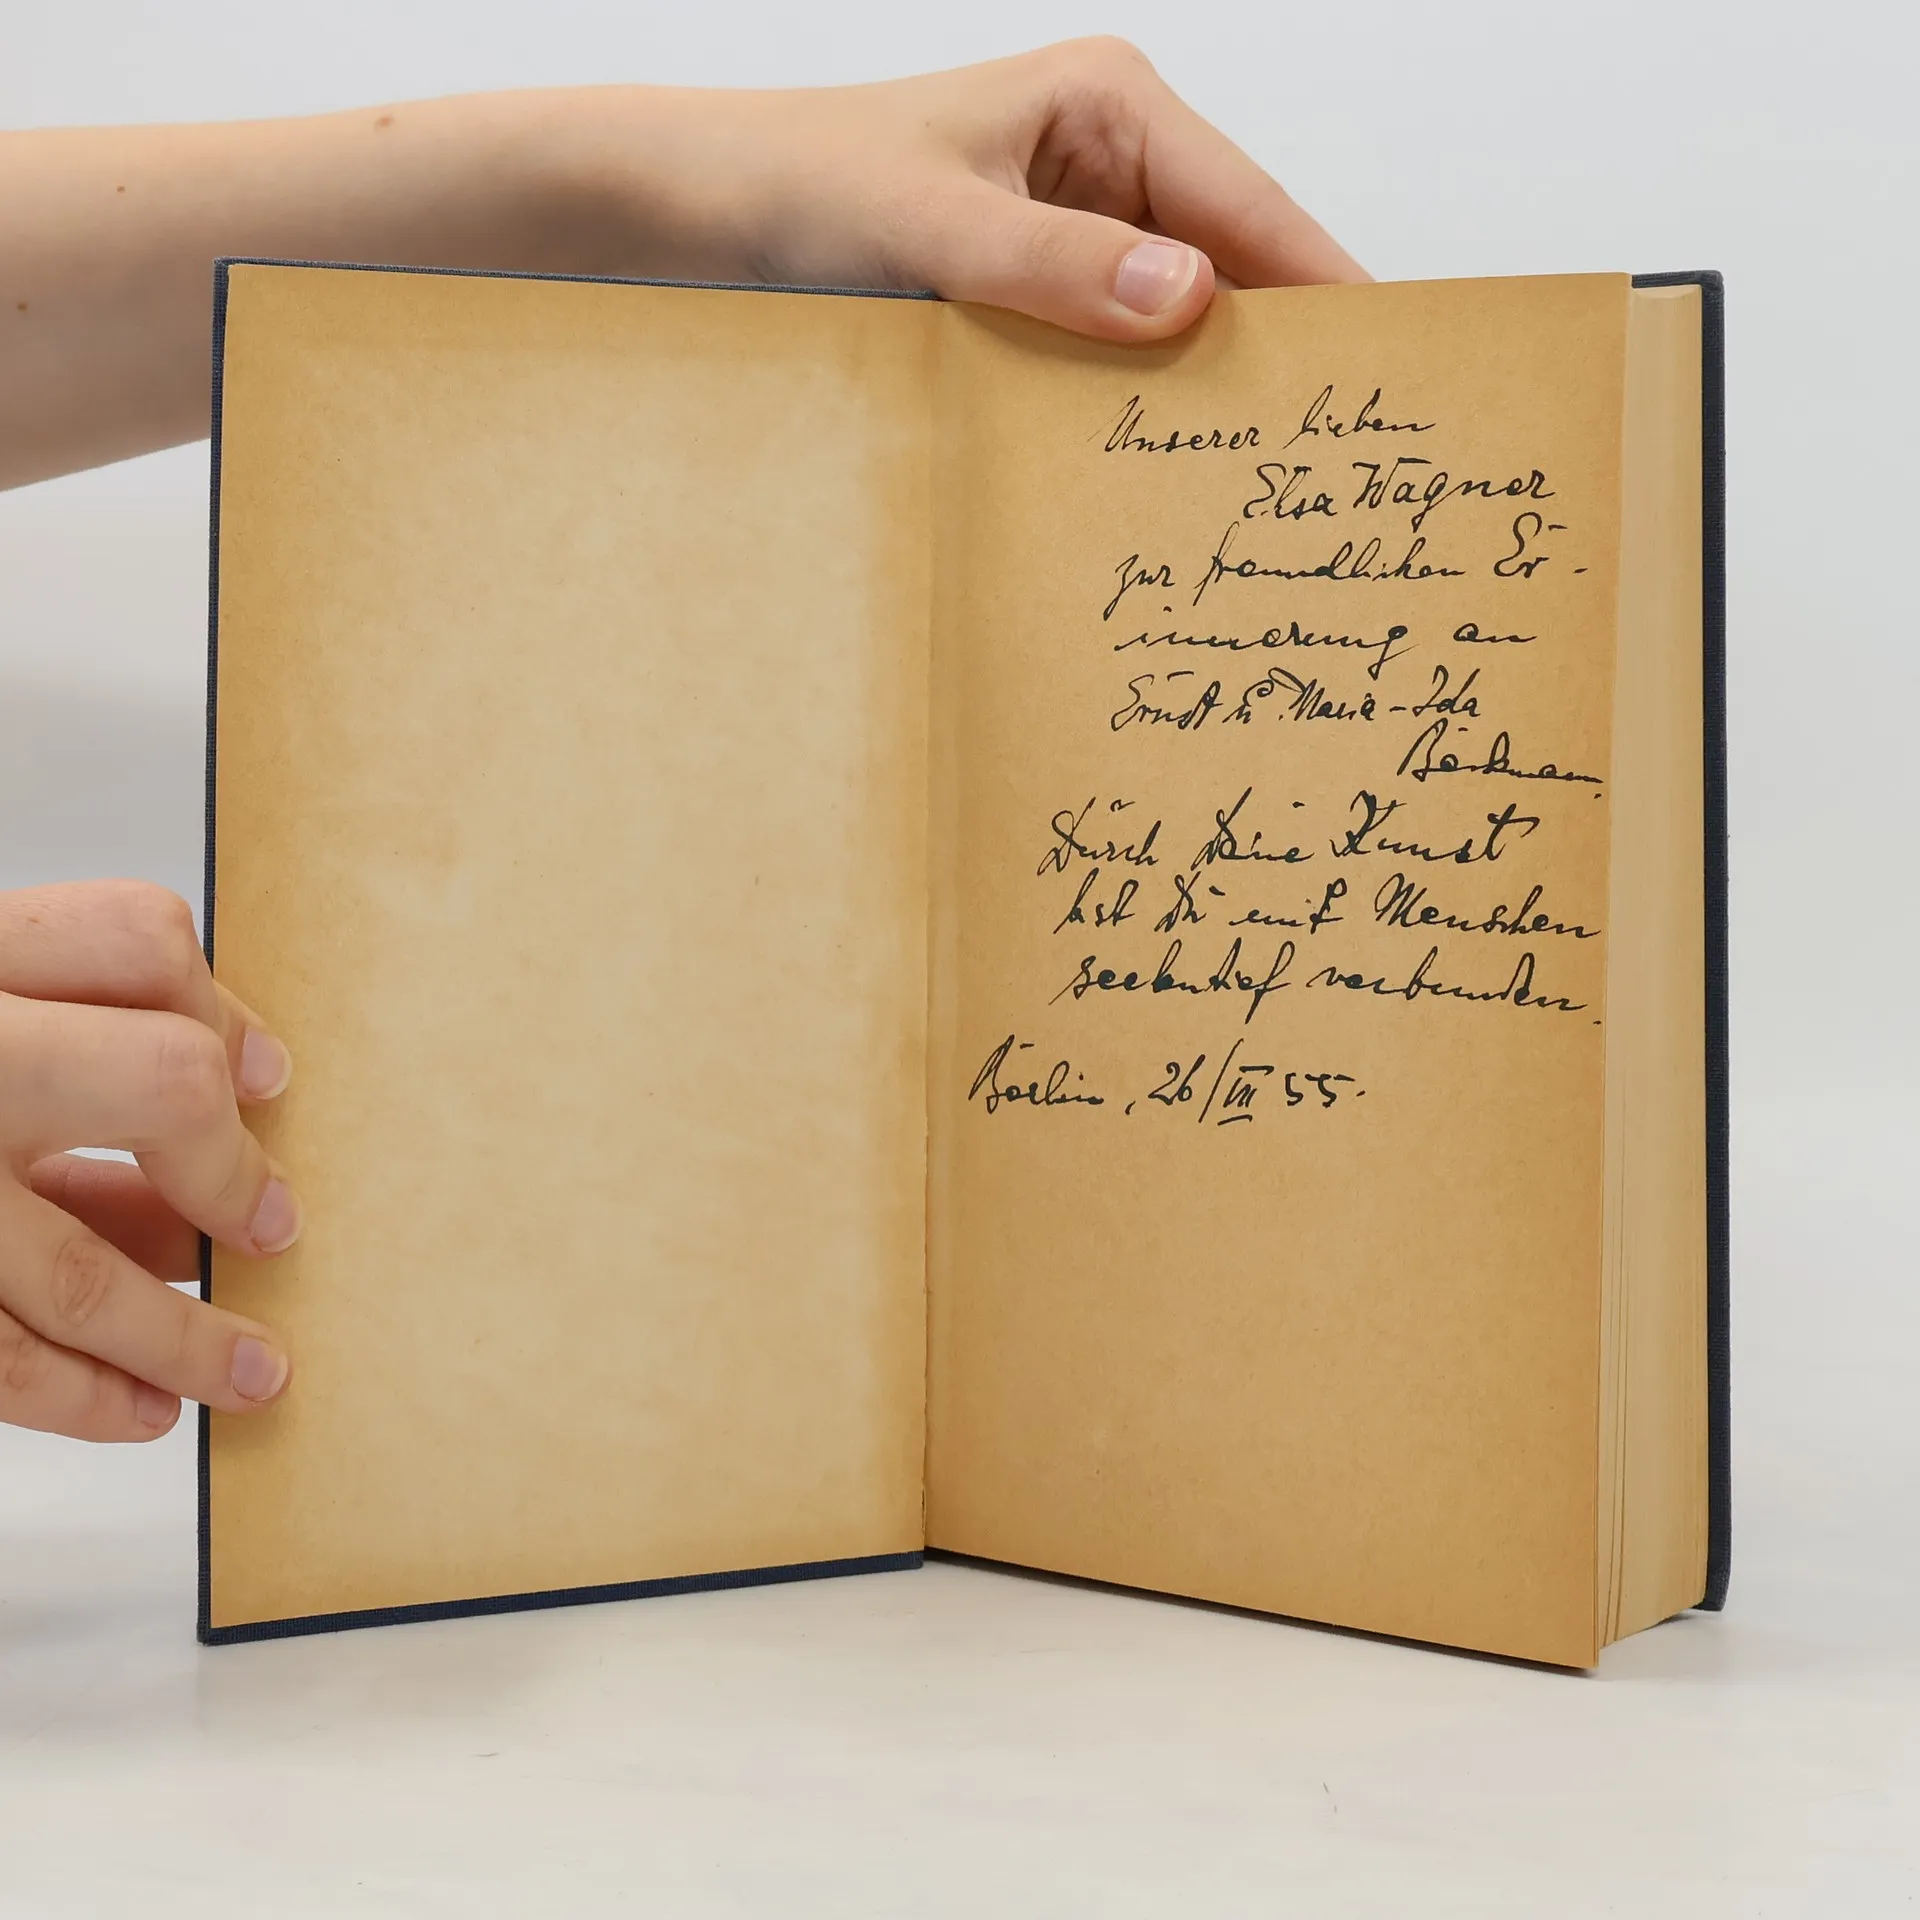 Unserer lieben
Elsa Wagner
zur freundlichen Er-
innerung an
Ernst u. Maria-Ida
Durch Deine Kunst
bist Du mit Menschen
seelentief verbunden.
Berlin, 26/VII 55.